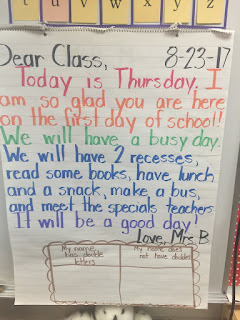 t u v w x y z
Dear Class, 8-23-17
Today is Thursday. I
am so glad you are here
on the first day of school!!
We will have a busy day.
We will have 2 recesses,
read some books, have lunch
and a snack, make a bus,
and meet the specials teachers.
It will be a good day!
Love, Mrs. B
My name has double letters
My name does not have doubles